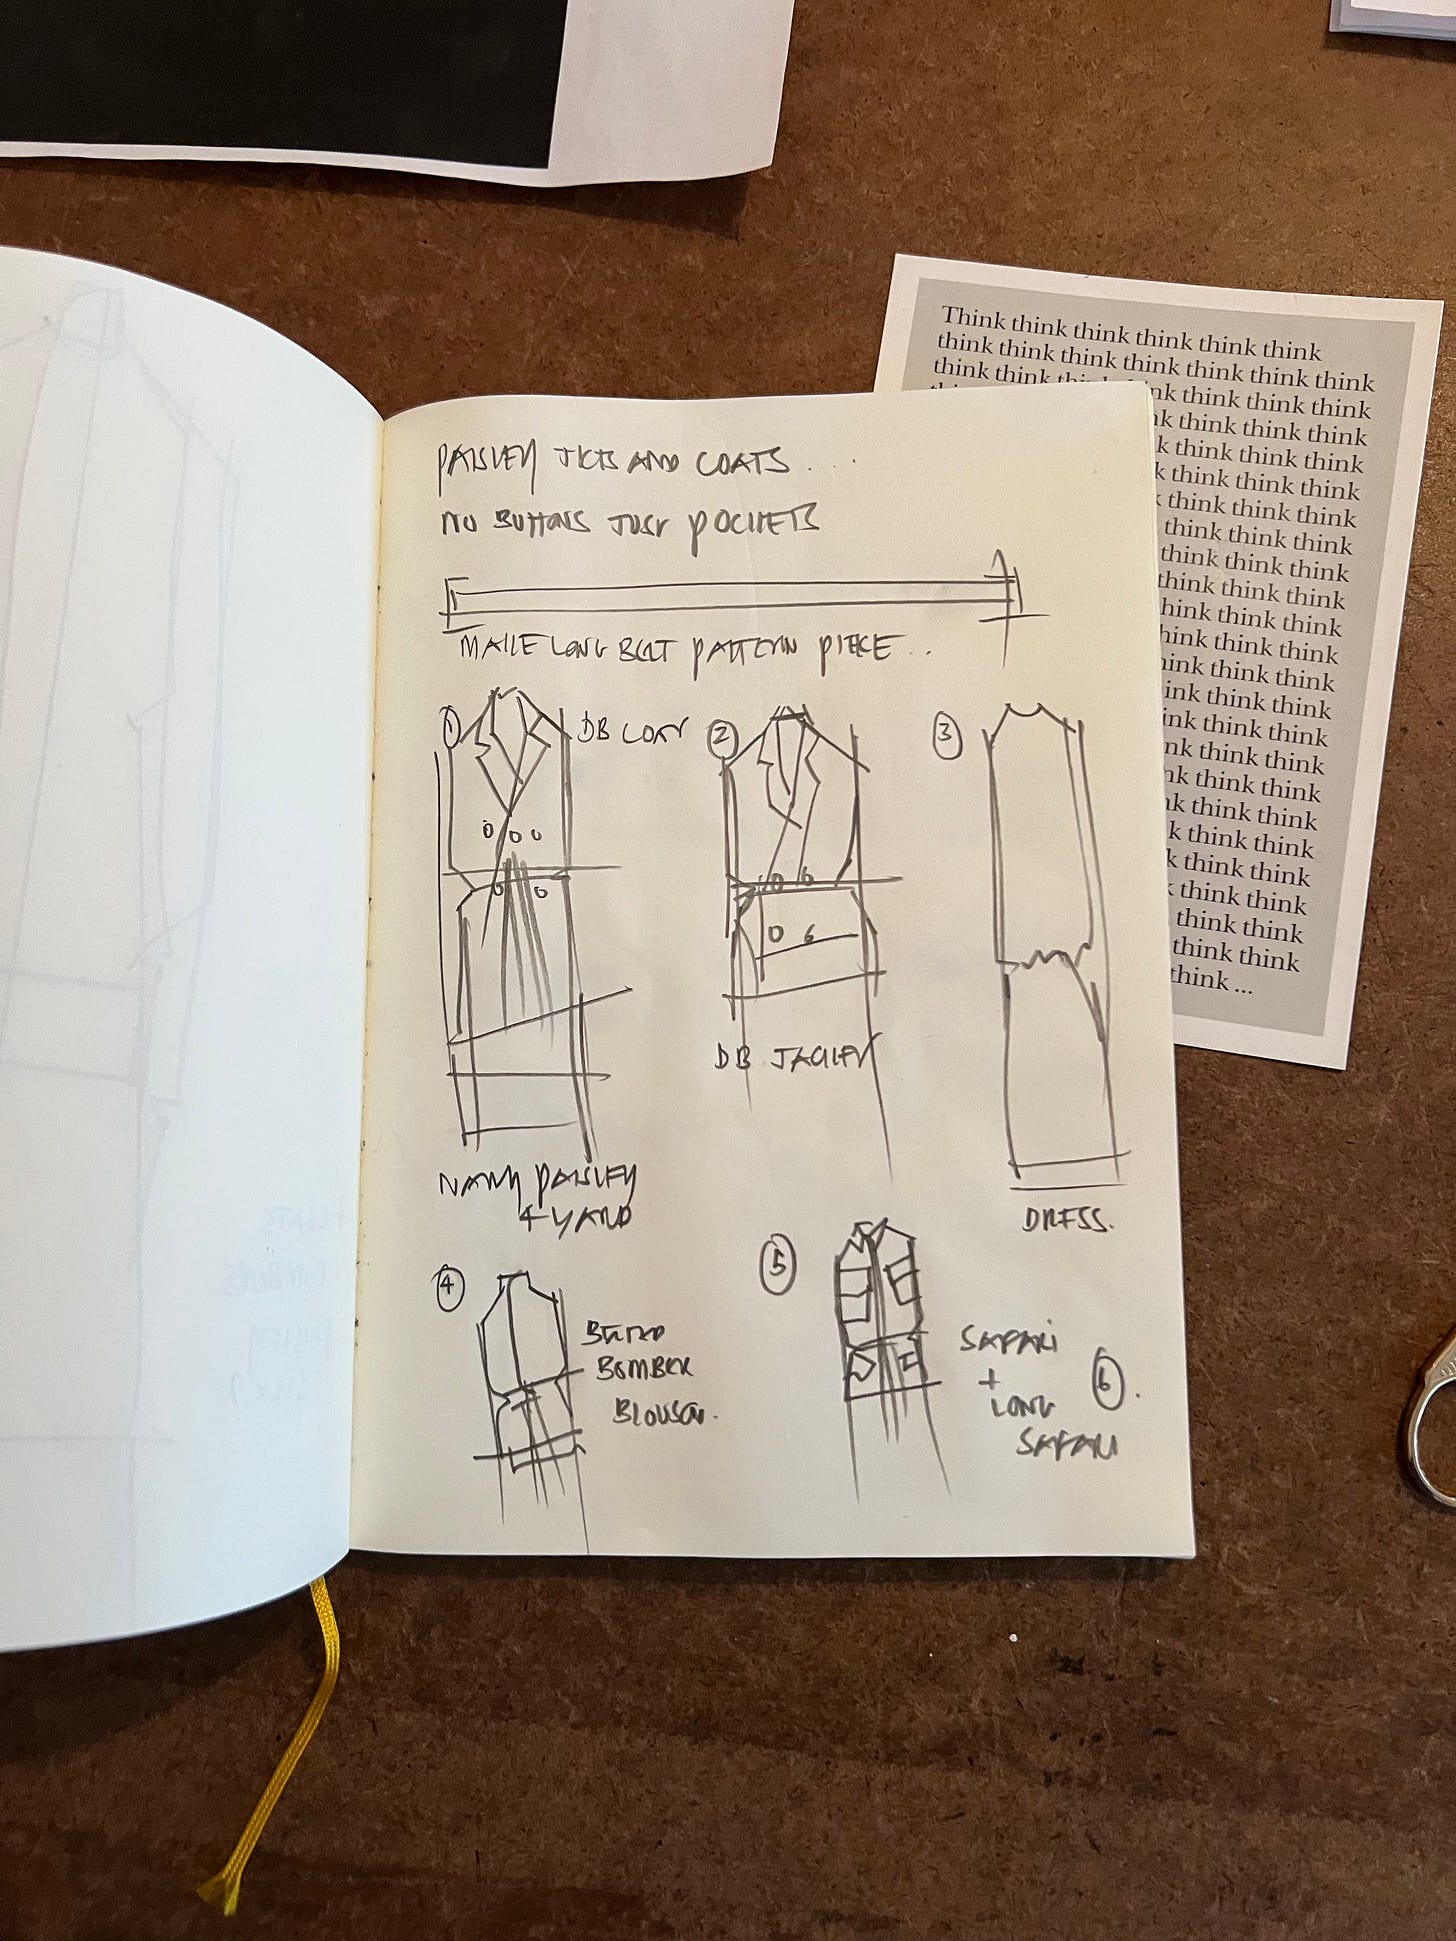 PAISLEY JKTS AND COATS....
NO BUTTONS JUST POCKETS
MAKE LONG BELT PATTERN PIECE..
1 DB COAT
2
3
DB JACKET
NAVY PAISLEY
4 YARD
DRESS.
4
5
BELTED
BOMBER
BLOUSON.
SAFARI
+
LONG
SAFARI
6.
Think think think think think think
think think think think think think think
think think think think think think
think think think
think think think
think think think
think think think
think think think
think think think
think think think
think think think
think think
think think
think think
think think
think think
think think
think think
think think
think think
think think
think think
think think
think think think
think think
think ...